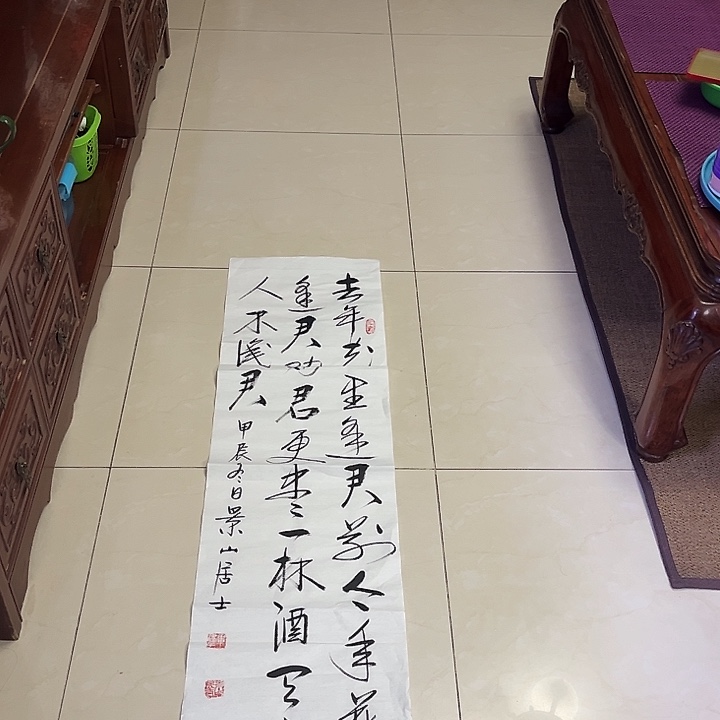 去年花里逢君别今年花
逢君劝君更尽一杯酒天
人不識君
甲辰冬日景山居士